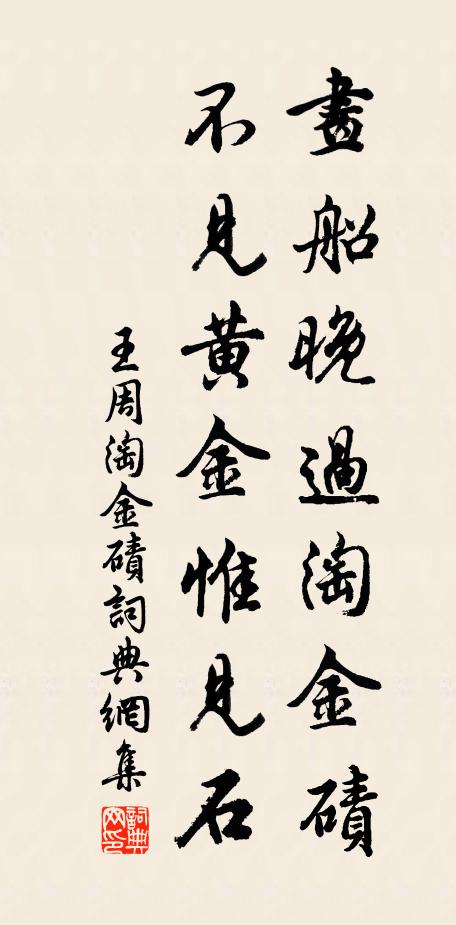 畫船晚過淘金磧
不見黃金惟見石
王周淘金磧詞典網集
詞典网印